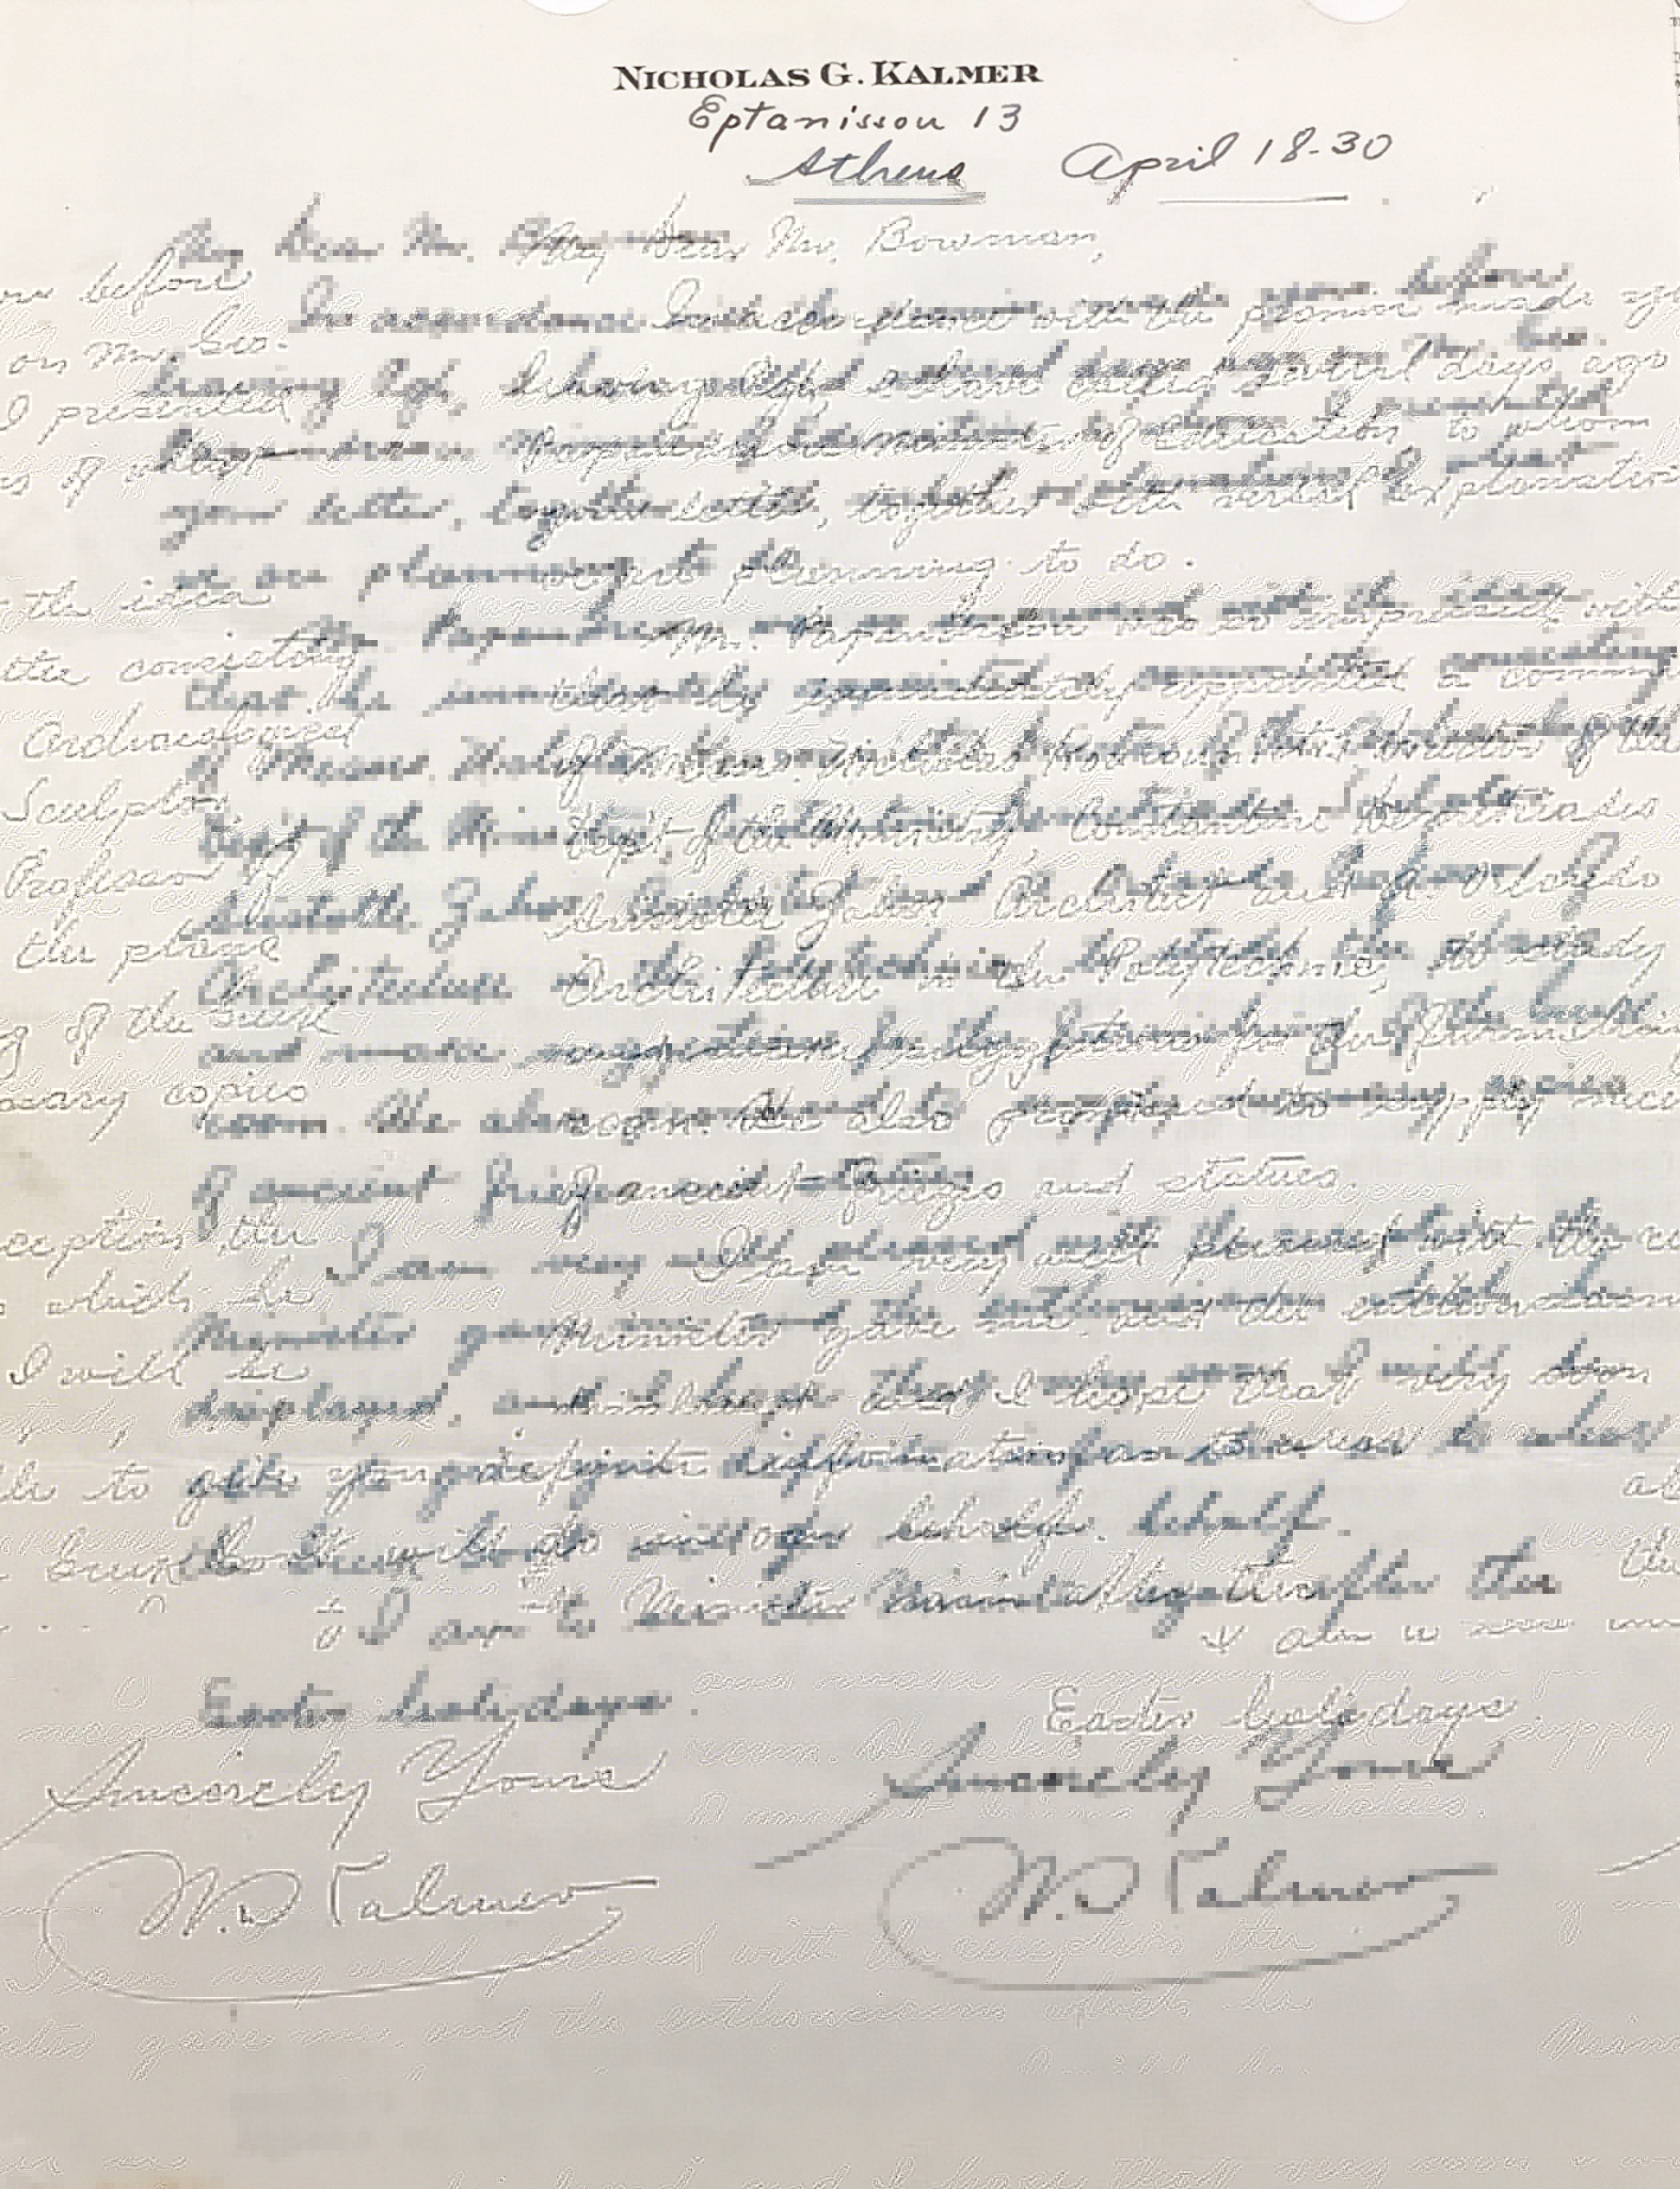 NICHOLAS G. KALMER
Eptanissou 13
Athens April 18-30
My Dear Mr. Bowman,
In accordance with the promise made you before
leaving I called several days ago on Mr. Geo.
Papandreou Minister of Education, to whom I presented
your letter, together with verbal explanations of what
we are planning to do.
Mr. Papandreou was so impressed with the idea
that he immediately appointed a committee consisting
of Messrs. Director of the Archaeological
Dept. of the Ministry, Constantine Demetriades Sculptor
Aristotle Zahos Architect and A. Orlandos Professor of
Architecture in the Polytechnic, to study the plans
and make suggestions for the furnishing of the
room. He also promised to supply necessary copies
of ancient friezes and statues.
I am very well pleased with the reception the
Minister gave me and the enthusiasm which he
displayed, and I hope that very soon I will be
able to give you definite information as to what
the will do in our behalf.
I am to see Minister again after the
Easter holidays.
Sincerely Yours
N. G. Kalmer